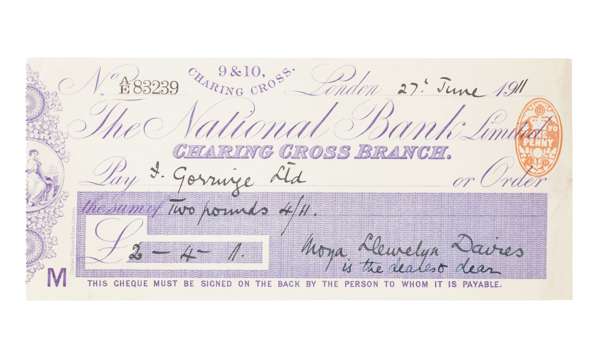 9 & 10,
CHARING CROSS.
No A/E 83239 London 27: June 1911
The National Bank Limited
CHARING CROSS BRANCH.
Pay Gorringe Ltd or Order
the sum of Two pounds 4/11.
£2-4-11.
Moya Llewelyn Davies
is the dearest dear
PENNY
M
THIS CHEQUE MUST BE SIGNED ON THE BACK BY THE PERSON TO WHOM IT IS PAYABLE.